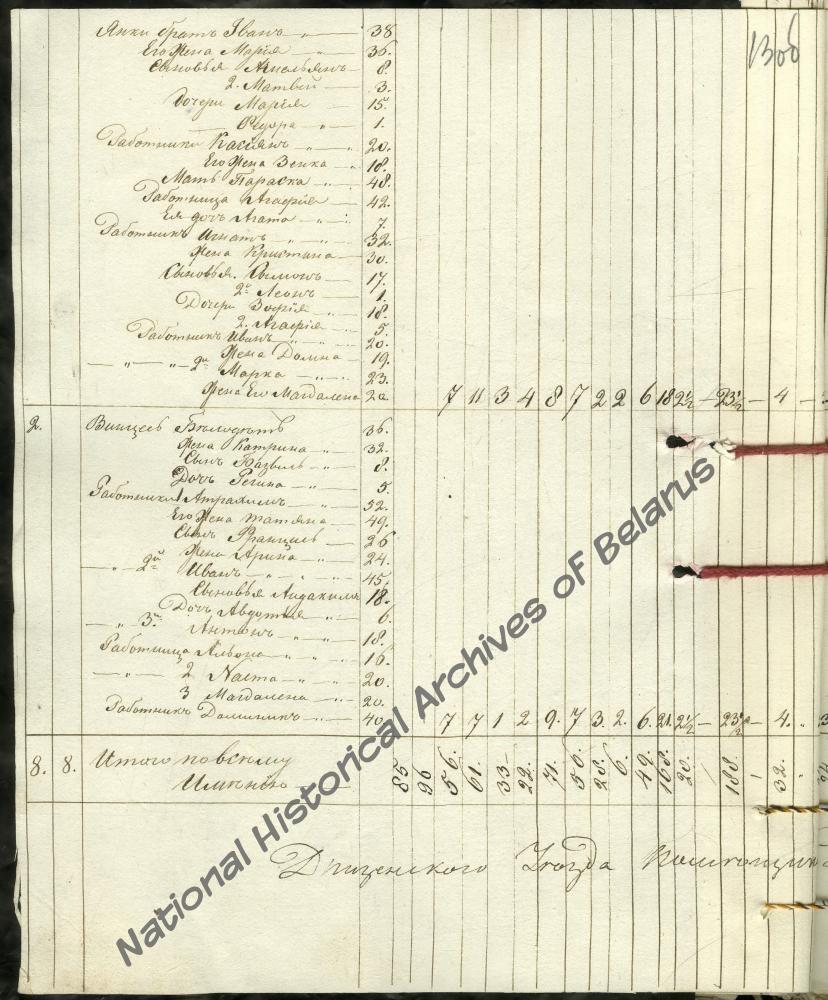 13об
Янки братъ Иванъ „ — 38
Его Жена Марiя „ — 36.
Сыновья — 8.
2. Матвей — 3.
Дочери Марiя — 15.
Федора „ — 1.
Работники Касiянъ „ — 20.
Его Жена Зенка „ 18.
Мать Параска — „ — 48.
Работница Агафiя — 42.
Ея дочь Агата „ 7.
Работникъ Игнатъ „ — 32.
Жена Кристина — 30.
Сыновья — 17.
2й Леонъ — 1.
Дочери Зофiя — 18.
2. Агафiя — 5.
Работникъ Иванъ „ 20.
Жена Домна — 19.
— „ — „ — 2й Марка — 23.
Жена Его Магдалена 20 7 11 3 4 8 7 2 2 6 18 2½ — 23½ — 4 —
2. Винцесь 36.
Жена Катрина „ — 32.
Сынъ Базыль — „ 8.
Дочь Регина — „ 5.
Работники 1 — „ — 52.
Его Жена Татяна — 49.
Сынъ Францишъ — 26
Жена Арина — 24.
— „ — 2й Иванъ — „ — 45.
Сыновья 18.
Дочь Авдотья „ 6.
— „ 3й Антонъ — „ — „ 18.
Работница Альона — „ „ 16.
— „ — 2 Наста — „ — 20.
3 Магдалена — „ 20.
Работникъ Доминикъ — „ 40. 7 7 1 2 9. 7 3. 2. 6. 21. 2½ — 23½ — 4. „
8. 8. Итого по всему
Имѣнью — 85 96 56. 61. 33 22. 71. 50. 28. 6. 49. 168. 20. — 188 — 32. „
Дризенского Уезда
National Historical Archives of Belarus